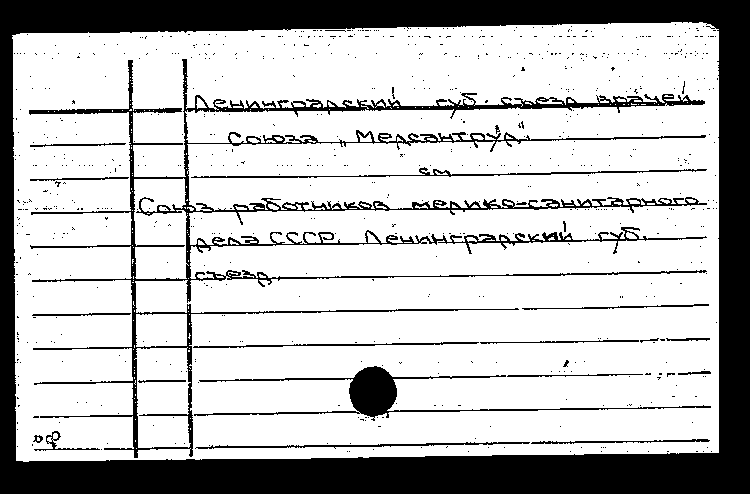 Ленинградский губ. съезд врачей
Союза „Медсантруд"
см
Союз работников медико-санитарного
дела СССР. Ленинградский губ.
съезд.